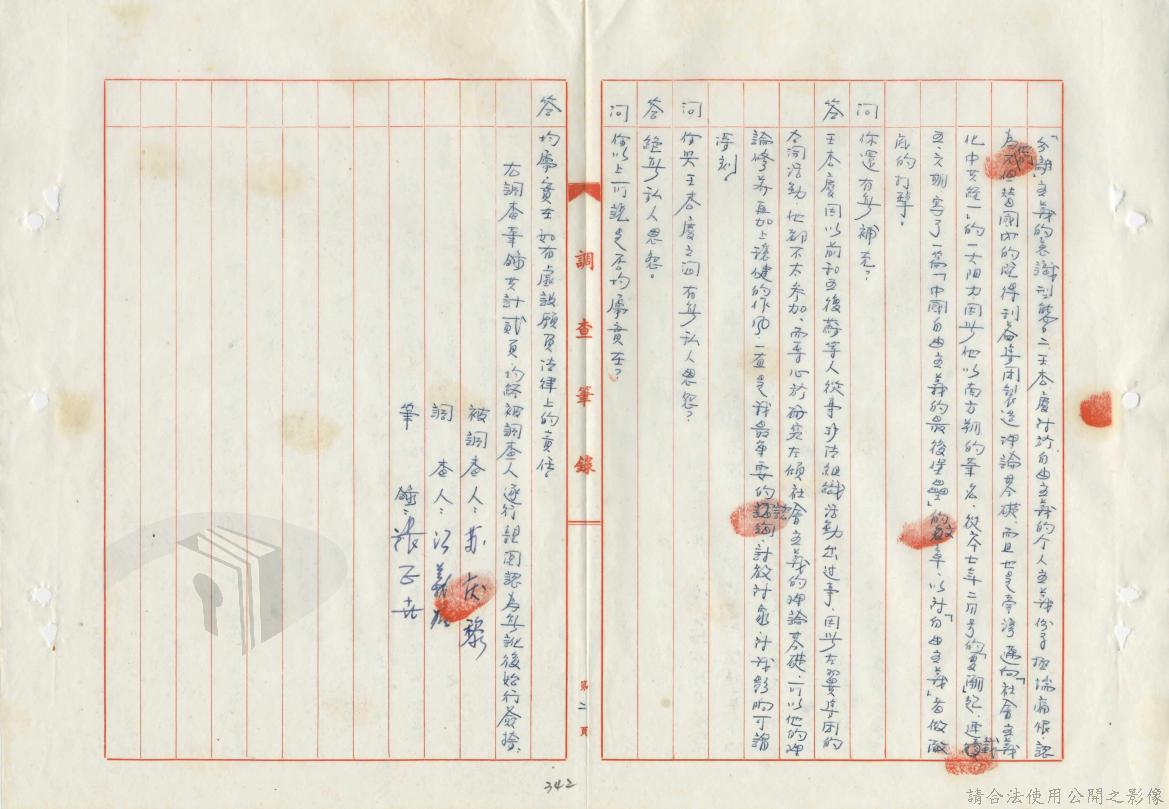 「分離主義的意識型態」二、王杏慶對於自由主義的个人主義份子極端痛恨、認
為他不但替國內的既得利益集團製造理論基礎、而且也是台灣邁向「社會主義
化中共統一」的一大阻力因此他以南方朔的筆名、從六七年二月号的「夏潮」起、連續
五、六期寫了一篇「中國自由主義的最後堡壘」的文章、以對「自由主義」者做徹
底的打擊。
問 你還有無補充？
答 王杏慶因以前和五後蘇等人從事非法組織活動出过事、因此左翼集團的
公開活動、他都不太參加、而專心於研究左傾社會主義的理論基礎、可以他的理
論修养再加上穩健的作風、一直是我最重要的諮詢、討教對象、對我影响可謂
深刻。
問 你與王杏慶之间有無私人恩怨？
答 絕無私人恩怨。
問 你以上所說是否均屬實在？
答 均屬實在如有虛設願負法律上的責任。
右調查筆錄共計貳頁、均經被調查人逐行親閱認為無訛後始行簽捺、
被調查人：蘇慶黎
調查人：
筆錄：張
調查筆錄
第二頁
342
請合法使用公開之影像